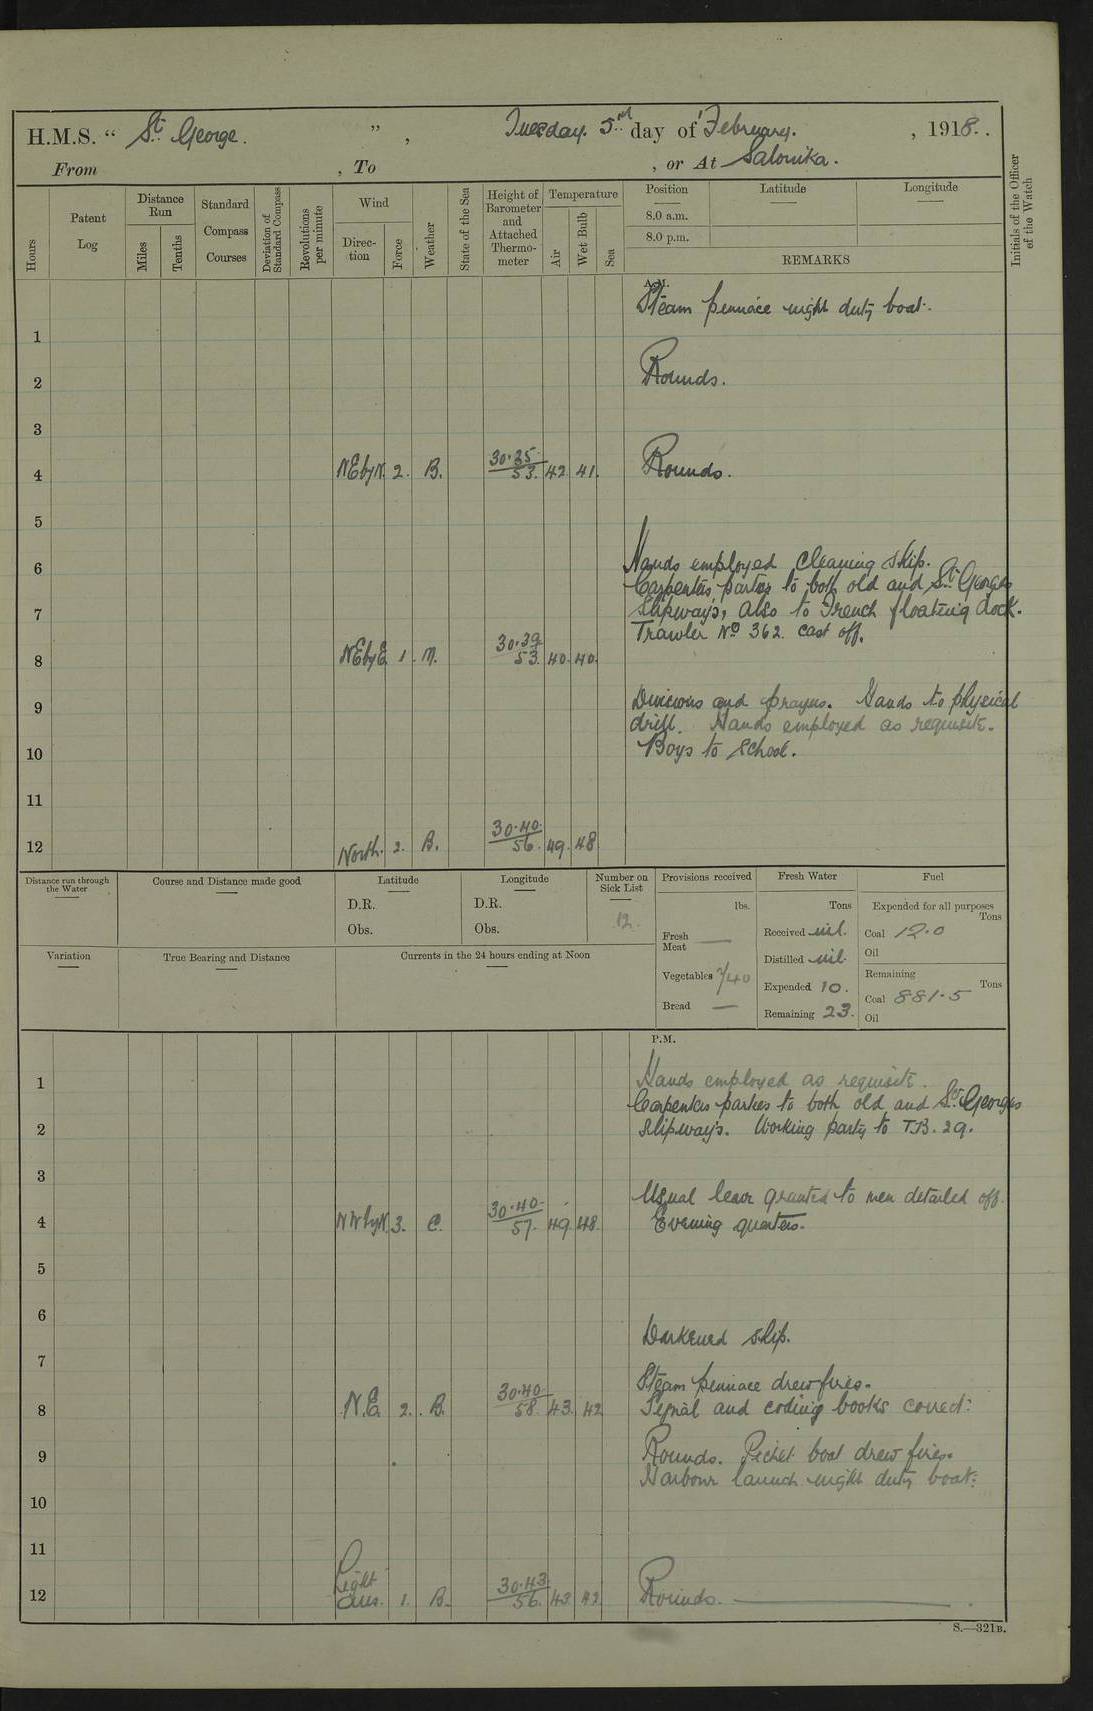 H.M.S. “ St. George. ” , Tuesday. 5 day of February. , 1918.
From , To , or At Salonika.
Hours
Patent Log
Distance Run
Miles
Tenths
Standard Compass Courses
Deviation of Standard Compass
Revolutions per minute
Wind
Direction
Force
Weather
State of the Sea
Height of Barometer and Attached Thermometer
Temperature
Air
Wet Bulb
Sea
Position
8.0 a.m.
8.0 p.m.
Latitude
Longitude
REMARKS
Initials of the Officer of the Watch
A.M.
Steam pinnace night duty boat.
1
2 Rounds.
3
4 NEbyN. 2. B. 30.35 53. 42. 41. Rounds.
5
6 Hands employed cleaning ship.
Carpenters parties to both old and St. Georges
7 Slipways, also to French floating dock.
Trawler No 362 cast off.
8 NEbyE 1. M. 30.39 53. 40. 40.
9 Divisions and prayers. Hands to physical
drill. Hands employed as requisite.
10 Boys to School.
11
12 North. 2. B. 30.40. 56. 49. 48
Distance run through the Water
Course and Distance made good
Latitude
D.R.
Obs.
Longitude
D.R.
Obs.
Number on Sick List
12.
Provisions received
lbs.
Fresh Meat —
Vegetables 740
Bread —
Fresh Water
Tons
Received nil.
Distilled nil.
Expended 10.
Remaining 23.
Fuel
Expended for all purposes
Tons
Coal 12.0
Oil
Remaining
Tons
Coal 881.5
Oil
Variation
True Bearing and Distance
Currents in the 24 hours ending at Noon
P.M.
1 Hands employed as requisite.
Carpenters parties to both old and St. Georges
2 Slipways. Working party to T.B. 29.
3
Usual leave granted to men detailed off.
4 NWbyN. 3. C. 30.40. 57. 49. 48. Evening quarters.
5
6
Darkened ship.
7
Steam pinnace drew fires.
8 N.E. 2. B. 30.40 58. 43. 42 Signal and coding books correct:
9 Rounds. Picket boat drew fires.
Harbour launch night duty boat:
10
11
12 Light airs. 1. B. 30.43 56. 43. 42 Rounds.
S.—321B.